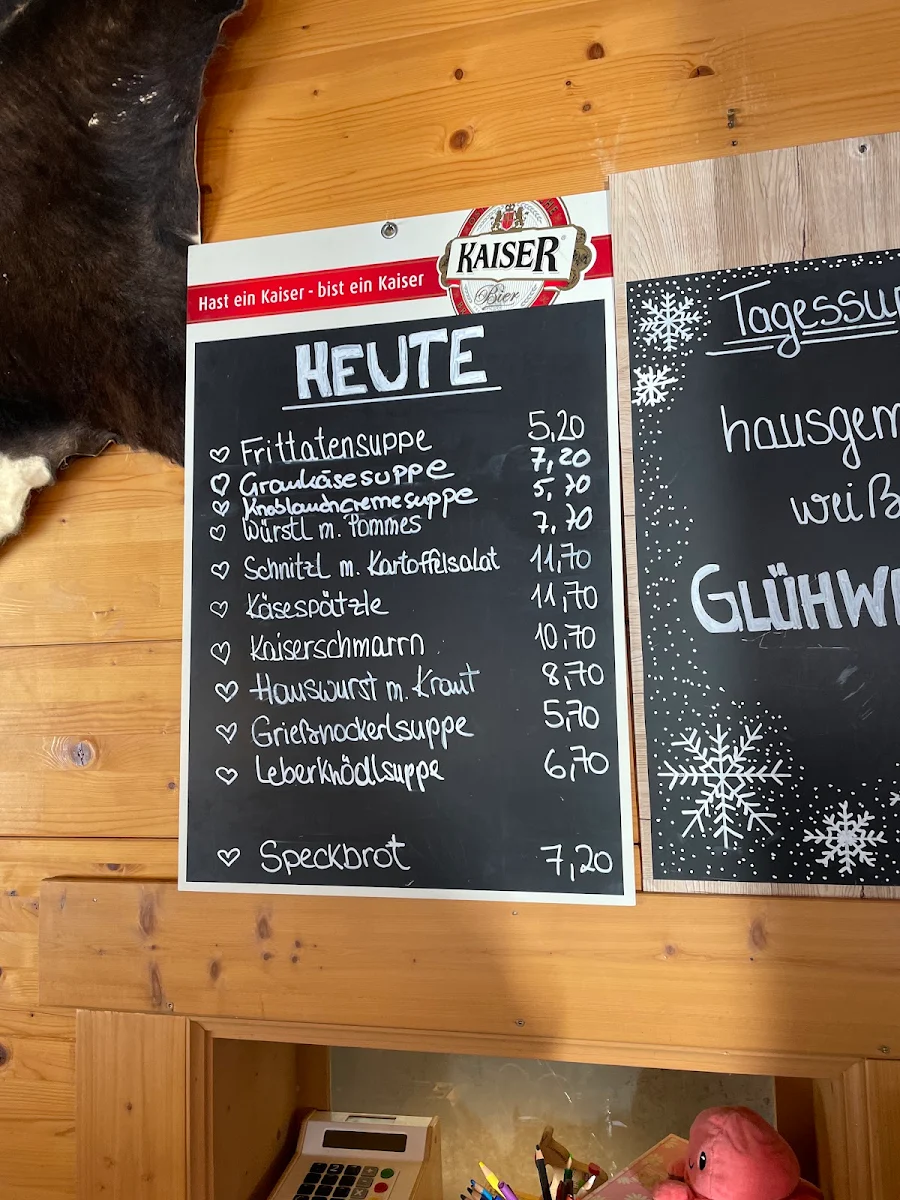 Hast ein Kaiser - bist ein Kaiser
KAISER
Bier
HEUTE
Frittatensuppe 5,20
Graukäsesuppe 7,20
Knoblauchcremesuppe 5,70
Würstl m. Pommes 7,70
Schnitzl m. Kartoffelsalat 11,70
Käsespätzle 11,70
Kaiserschmarrn 10,70
Hauswurst m. Kraut 8,70
Grießnockerlsuppe 5,70
Leberknödlsuppe 6,70
Speckbrot 7,20
Tagessup
hausgem
weiß
GLÜHW